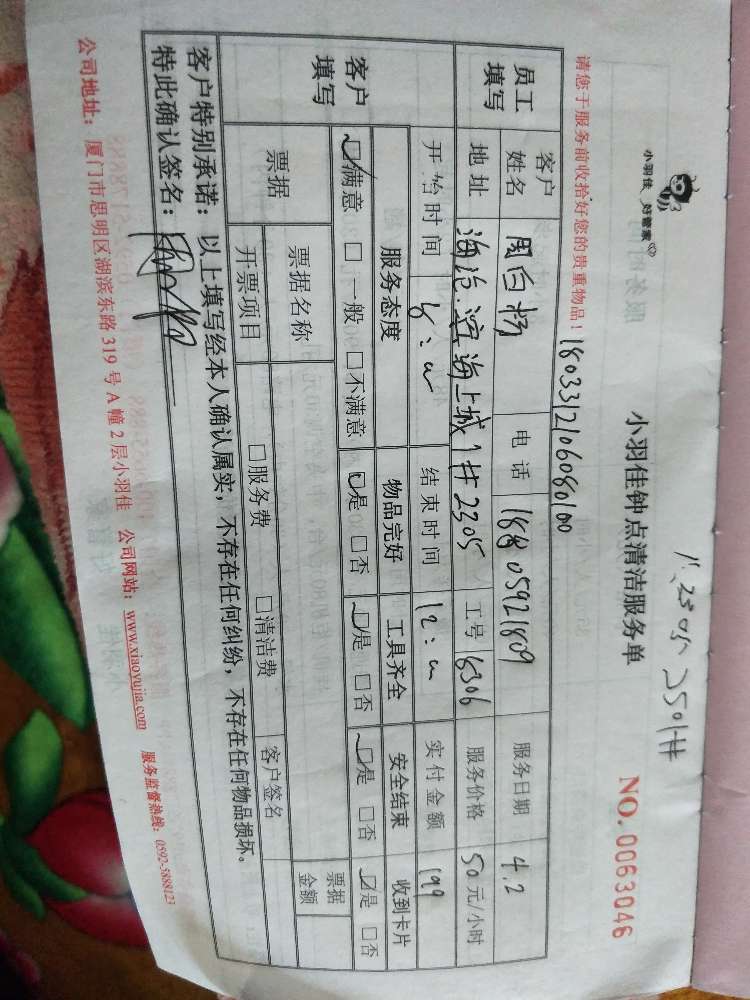 小羽佳 好管家
小羽佳钟点清洁服务单
NO. 0063046
请您于服务前收拾好您的贵重物品！
1803312106080100
员工填写
客户姓名 周白杨 电话 18805921809 服务日期 4.2
地址 海沧.滨海上城1#2305 工号 6306 服务价格 50元/小时
开始时间 8:00 结束时间 12:00 实付金额 199
客户填写
服务态度 物品完好 工具齐全 安全结束 收到卡片
☑满意 □一般 □不满意 ☑是 □否 ☑是 □否 ☑是 □否 ☑是 □否
票据 票据名称 票据金额
开票项目 □服务费 □清洁费 客户签名
客户特别承诺：以上填写经本人确认属实，不存在任何纠纷，不存在任何物品损坏。
特此确认签名：
公司地址：厦门市思明区湖滨东路319号A幢2层小羽佳 公司网站：www.xiaoyujia.com 服务监督热线：0592-5888123